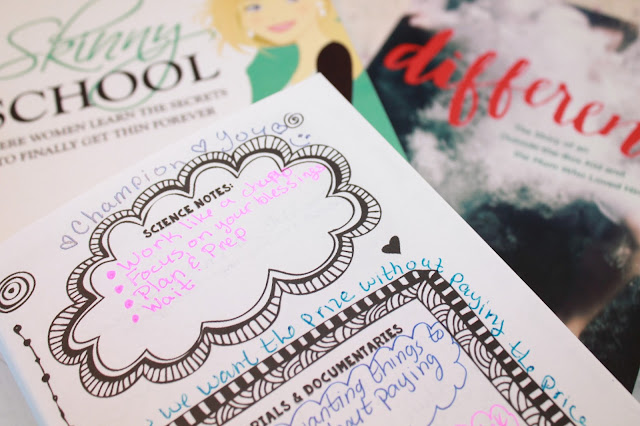 Skinny
SCHOOL
ERE WOMEN LEARN THE SECRETS
TO FINALLY GET THIN FOREVER
differen
The Story of an
Outside-the-Box Kid and
the Mom Who Loved H
Champion
SCIENCE NOTES:
Work like a champ
Focus on your blessings
Plan & Prep
Wait
we want the prize without paying the price
RIALS & DOCUMENTARIES
anting things to
out paying